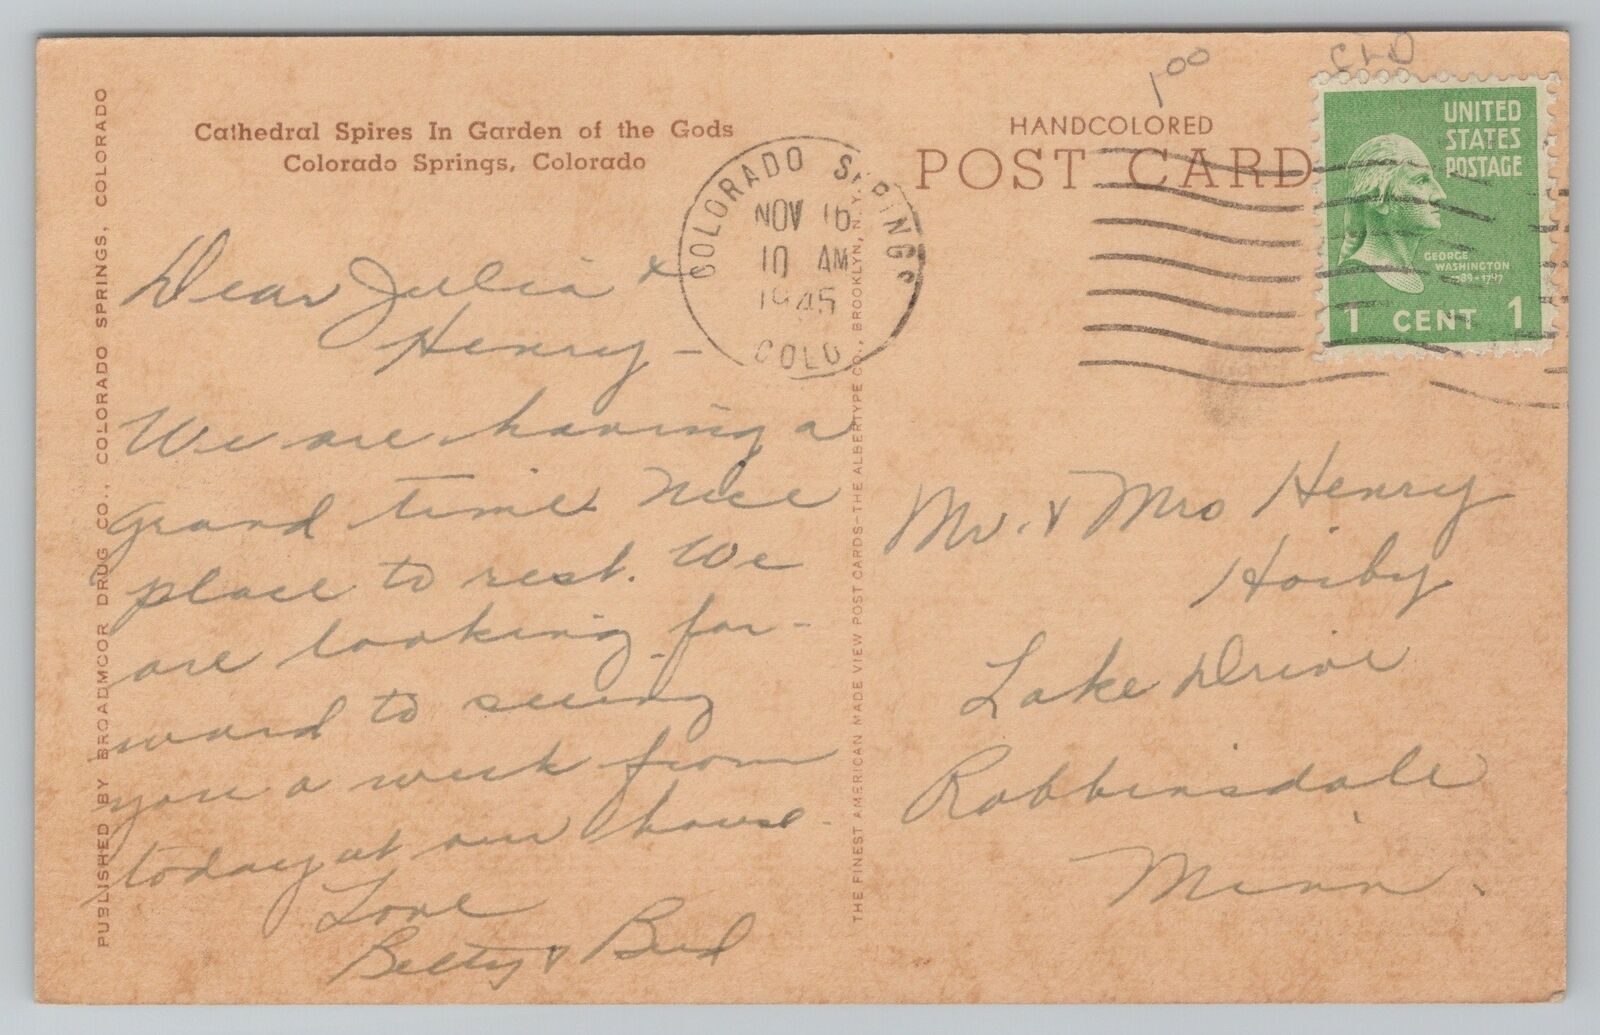 Cathedral Spires In Garden of the Gods
Colorado Springs, Colorado
PUBLISHED BY BROADMOOR DRUG CO., COLORADO SPRINGS, COLORADO
Dear Julia &
Henry –
We are having a
grand time. Nice
place to rest. We
are looking for-
ward to seeing
you a week from
today at our house.
Love
Betty & Bud
COLORADO SPRINGS
NOV 16
10 AM
1945
COLO
THE FINEST AMERICAN MADE VIEW POST CARDS—THE ALBERTYPE CO., BROOKLYN, N.Y.
1.00
HANDCOLORED
POST CARD
UNITED
STATES
POSTAGE
GEORGE
WASHINGTON
1789-1797
1 CENT 1
Mr. & Mrs Henry
Hoiby
Lake Drive
Robbinsdale
Minn.